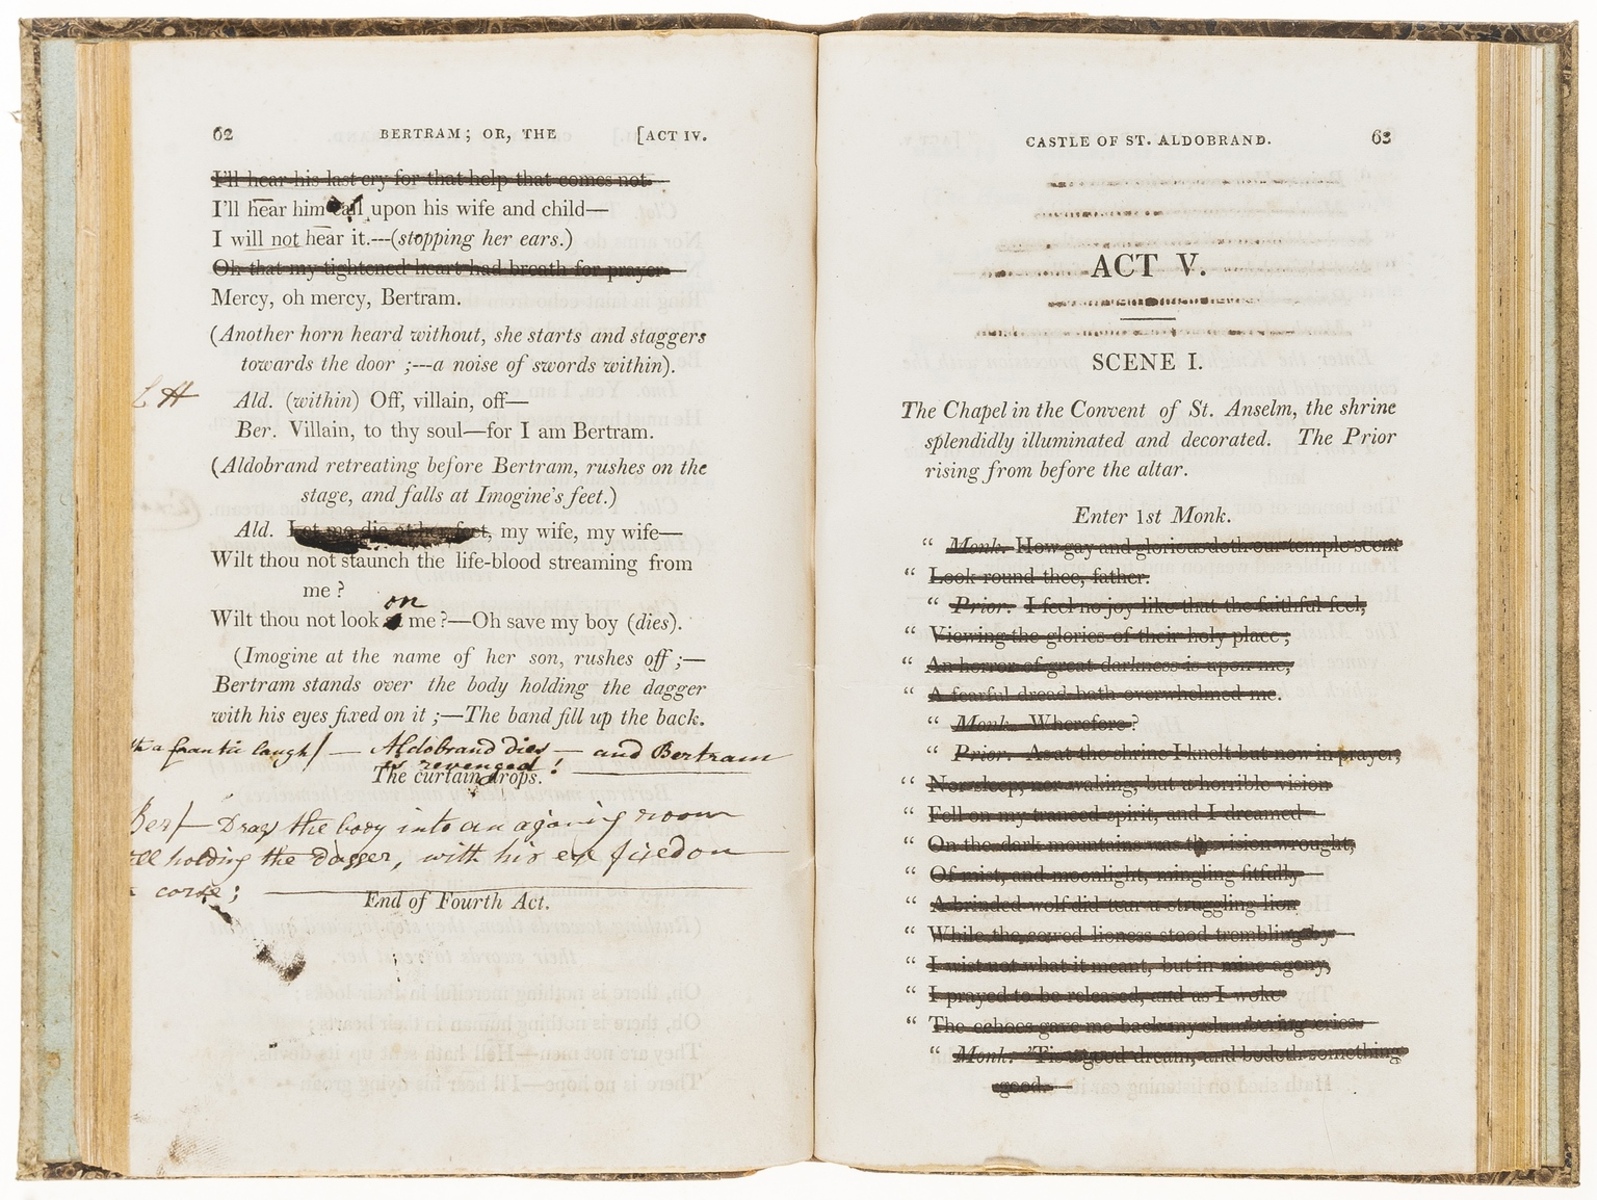 62 BERTRAM; OR, THE [ACT IV.
I'll hear his last cry for that help that comes not
I'll hear him call upon his wife and child—
I will not hear it.---(stopping her ears.)
Oh that my tightened heart had breath for prayer
Mercy, oh mercy, Bertram.
(Another horn heard without, she starts and staggers
towards the door ;---a noise of swords within).
Ald. (within) Off, villain, off—
Ber. Villain, to thy soul—for I am Bertram.
(Aldobrand retreating before Bertram, rushes on the
stage, and falls at Imogine's feet.)
Ald. Let me die at her feet, my wife, my wife—
Wilt thou not staunch the life-blood streaming from
me ?
on
Wilt thou not look me ?—Oh save my boy (dies).
(Imogine at the name of her son, rushes off ;—
Bertram stands over the body holding the dagger
with his eyes fixed on it ;—The band fill up the back.
a frantic laugh/ — Aldobrand dies — and Bertram
is revenged !
The curtain drops.
Ber/— Drags the body into an room
holding the dagger, with his eye fixed on
corse ;
End of Fourth Act.
CASTLE OF ST. ALDOBRAND. 63
ACT V.
SCENE I.
The Chapel in the Convent of St. Anselm, the shrine
splendidly illuminated and decorated. The Prior
rising from before the altar.
Enter 1st Monk.
“ Monk. How gay and glorious doth our temple seem
“ Look round thee, father.
“ Prior. I feel no joy like that the faithful feel,
“ Viewing the glories of their holy place ;
“ An horror of great darkness is upon me,
“ A fearful dread hath overwhelmed me.
“ Monk. Wherefore ?
“ Prior. As at the shrine I knelt but now in prayer,
“ Nor sleep, nor waking, but a horrible vision
“ Fell on my tranced spirit, and I dreamed—
“ On the dark mountains was the vision wrought,
“ Of mist, and moonlight, mingling fitfully—
“ A brinded wolf did tear a struggling lion
“ While the cowed lioness stood trembling by—
“ I wist not what it meant, but in mine agony,
“ I prayed to be released, and as I woke
“ The echoes gave me back my slumbering cries.
“ Monk. 'Tis a good dream, and bodeth something
good.